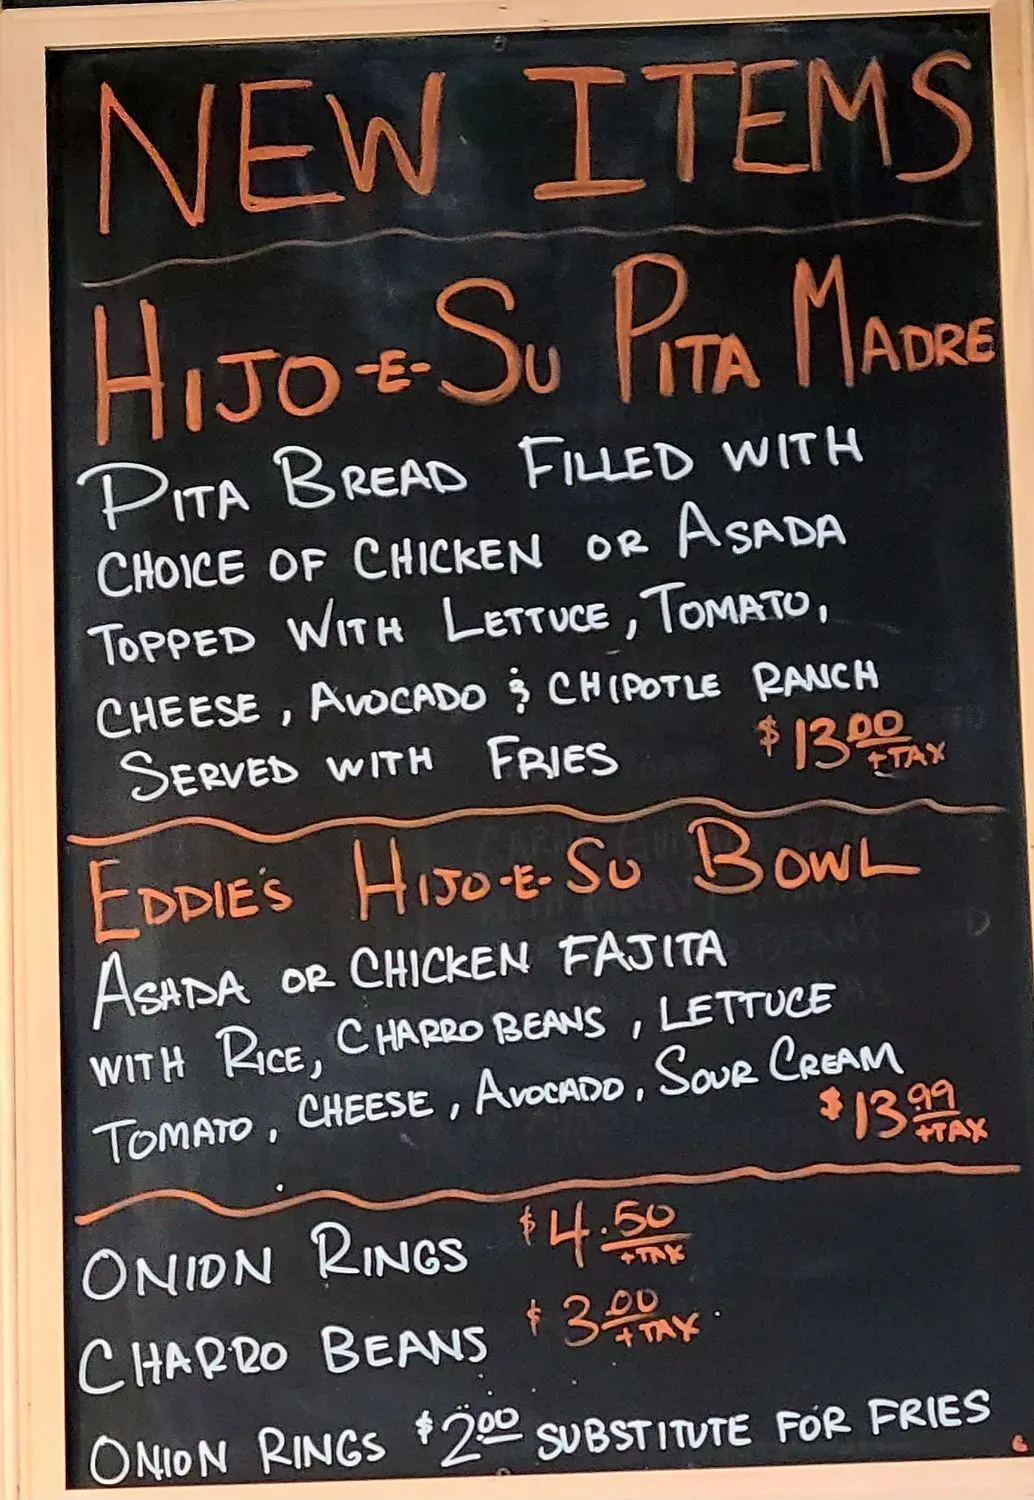 NEW ITEMS
HIJO-E-SU PITA MADRE
PITA BREAD FILLED WITH
CHOICE OF CHICKEN OR ASADA
TOPPED WITH LETTUCE, TOMATO,
CHEESE, AVOCADO & CHIPOTLE RANCH
SERVED WITH FRIES $13.00 +TAX
EDDIE'S HIJO-E-SU BOWL
ASADA OR CHICKEN FAJITA
WITH RICE, CHARRO BEANS, LETTUCE
TOMATO, CHEESE, AVOCADO, SOUR CREAM
$13.99 +TAX
ONION RINGS $4.50 +TAX
CHARRO BEANS $3.00 +TAX
ONION RINGS $2.00 SUBSTITUTE FOR FRIES